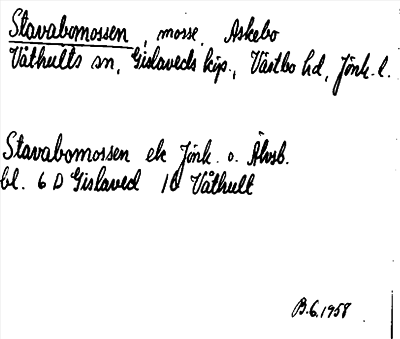 Stavabomossen, mosse, Askebo
Våthults sn, Gislaveds köp., Västbo hd, Jönk. l.
Stavabomossen ek Jönk. o. Älvsb.
bl. 6 D Gislaved 1b Våthult
B.6.1958